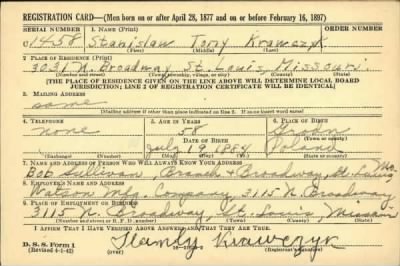 REGISTRATION CARD—(Men born on or after April 28, 1877 and on or before February 16, 1897)
SERIAL NUMBER 1. NAME (Print)
1458 Stanislaw Tony Krawczyk
(First) (Middle) (Last)
2. PLACE OF RESIDENCE (Print)
3031 N. Broadway St. Louis, Missouri
(Number and street) (Town, township, village, or city) (County) (State)
[THE PLACE OF RESIDENCE GIVEN ON THE LINE ABOVE WILL DETERMINE LOCAL BOARD
JURISDICTION; LINE 2 OF REGISTRATION CERTIFICATE WILL BE IDENTICAL]
3. MAILING ADDRESS
same
[Mailing address if other than place indicated on line 2. If same insert word same]
4. TELEPHONE 5. AGE IN YEARS 6. PLACE OF BIRTH
none 58
DATE OF BIRTH (Town or county)
July 19 1884 Poland
(Exchange) (Number) (Mo.) (Day) (Yr.) (State or country)
7. NAME AND ADDRESS OF PERSON WHO WILL ALWAYS KNOW YOUR ADDRESS
Bob Sullivan Branch & Broadway, St. Louis Mo.
8. EMPLOYER'S NAME AND ADDRESS
Watson Mfg. Company, 3115 N. Broadway
9. PLACE OF EMPLOYMENT OR BUSINESS
3115 N. Broadway, St. Louis, Missouri
(Number and street or R. F. D. number) (Town) (County) (State)
I AFFIRM THAT I HAVE VERIFIED ABOVE ANSWERS AND THAT THEY ARE TRUE.
D. S. S. Form 1
(Revised 4-1-42) (over) Krawczyk